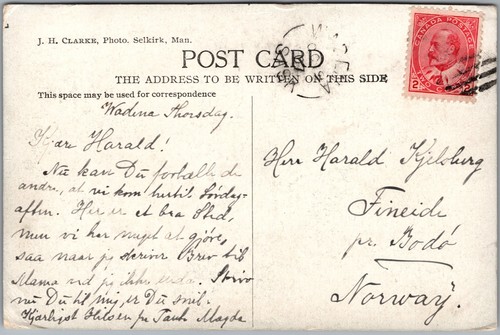 J. H. CLARKE, Photo. Selkirk, Man.
POST CARD
THE ADDRESS TO BE WRITTEN ON THIS SIDE
This space may be used for correspondence
CANADA POSTAGE
2 2
TWO CENTS
Wadena Thorsdag.
Kjære Harald!
Nu kan Du fortælle de
andre, at vi kom hertil Lørdag-
aften. Her er et bra Sted,
men vi har meget at gjøre,
saa naar jeg skriver Brev til
Mama ved jeg ikke enda. Skriv
nu Du til mig, er Du snil.
Kjærligst Hilsen fra Tante Magda
Herr Harald Kjelsberg
Fineide
pr. Bodö
Norway.